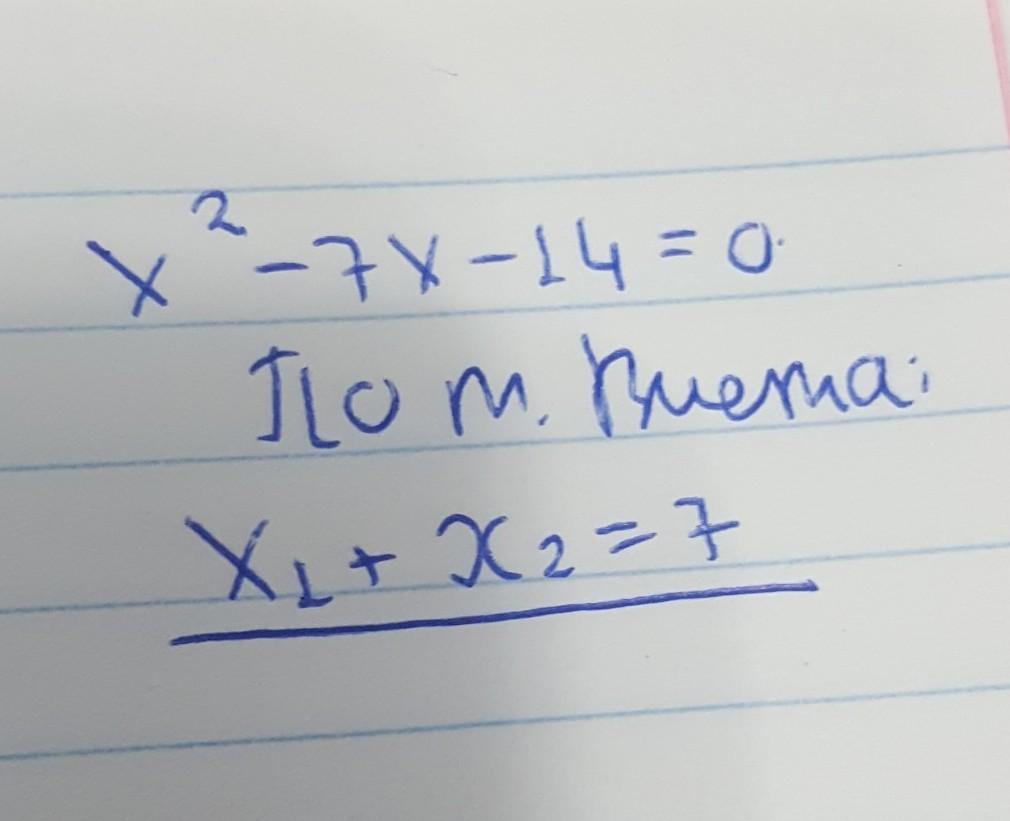 x² - 7x - 14 = 0.
По т. Виета:
x₁ + x₂ = 7